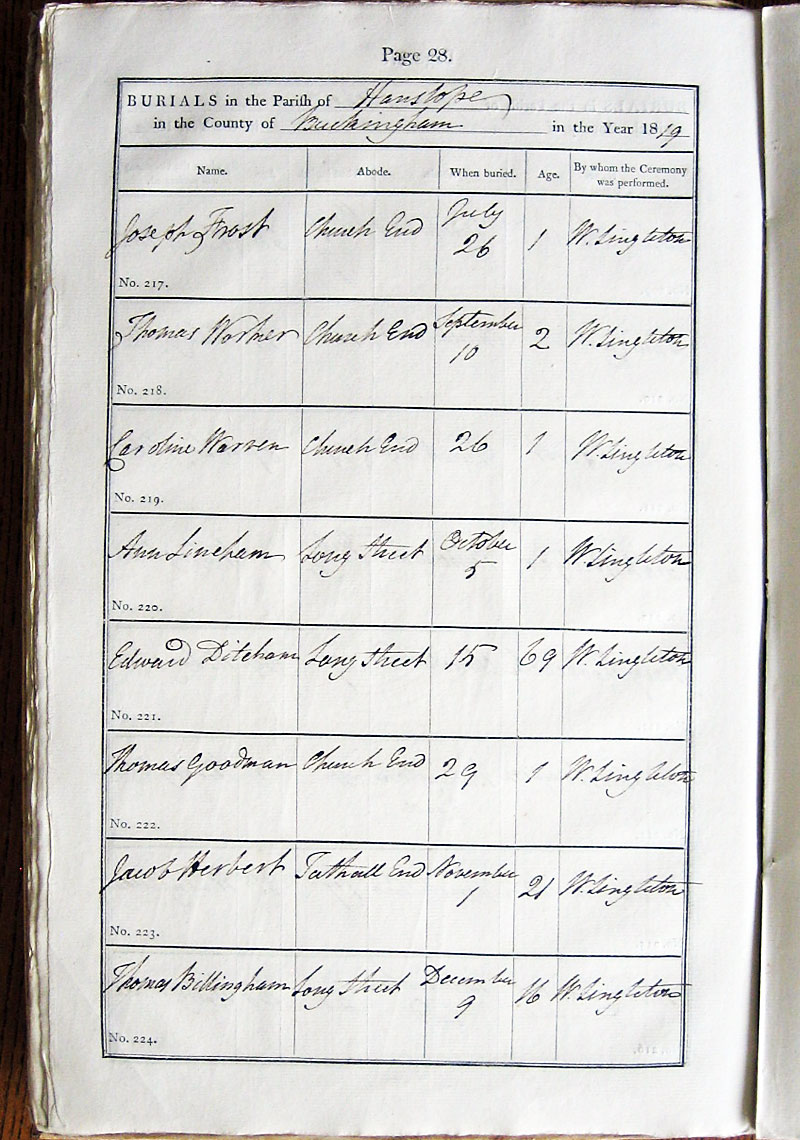 Page 28.
BURIALS in the Parish of Hanslope
in the County of Buckingham in the Year 1819
Name. Abode. When buried. Age. By whom the Ceremony was performed.
Joseph Frost Church End July 26 1 W. Singleton
No. 217.
Thomas Worker Church End September 10 2 W. Singleton
No. 218.
Caroline Warren Church End 26 1 W. Singleton
No. 219.
Ann Lineham Long Street October 5 1 W. Singleton
No. 220.
Edward Ditcham Long Street 15 69 W. Singleton
No. 221.
Thomas Goodman Church End 29 1 W. Singleton
No. 222.
Jacob Herbert Tathall End November 1 21 W. Singleton
No. 223.
Thomas Billingham Long Street December 9 16 W. Singleton
No. 224.